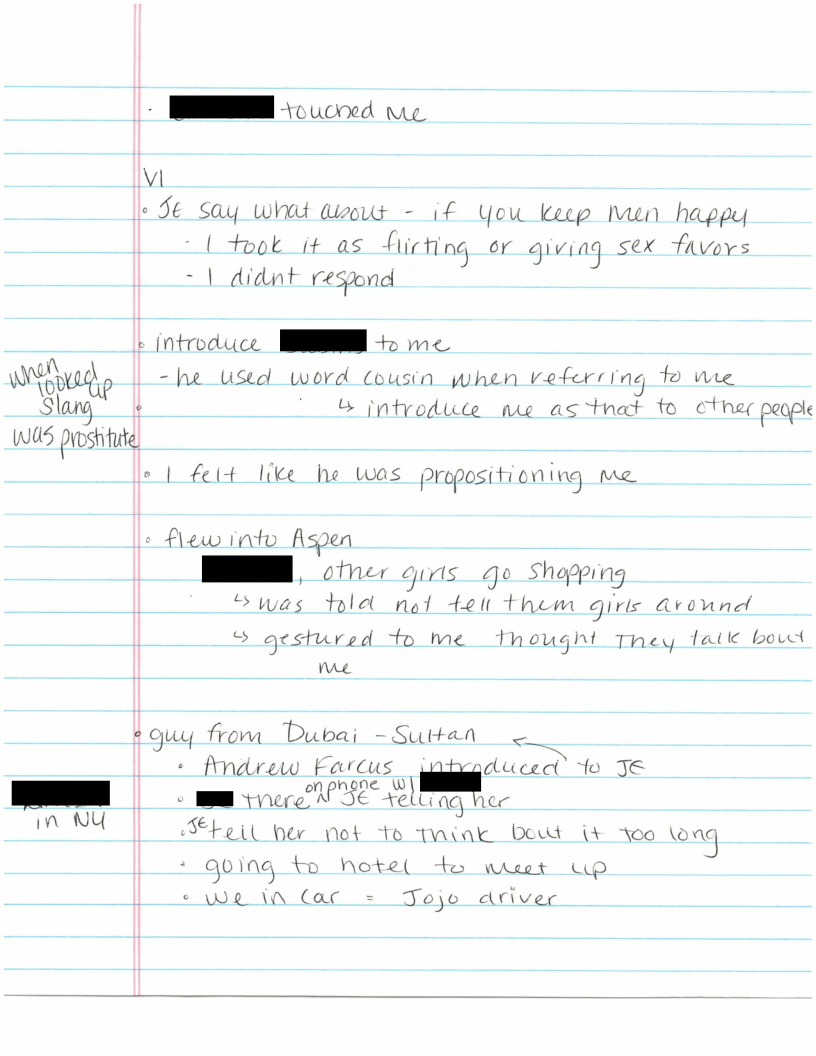 · touched me
VI
• JE say what about - if you keep men happy
- I took it as flirting or giving sex favors
- I didnt respond
• introduce to me
- he used word cousin when referring to me
↳ introduce me as that to other people
when looked up
slang
was prostitute
• I felt like he was propositioning me
• flew into Aspen
, other girls go shopping
↳ was told not tell them girls around
↳ gestured to me thought they talk bout
me
• guy from Dubai - Sultan
• Andrew Farcus introduced to JE
on phone w/
• there JE telling her
in NY
• JE tell her not to think bout it too long
• going to hotel to meet up
• we in car = Jojo driver